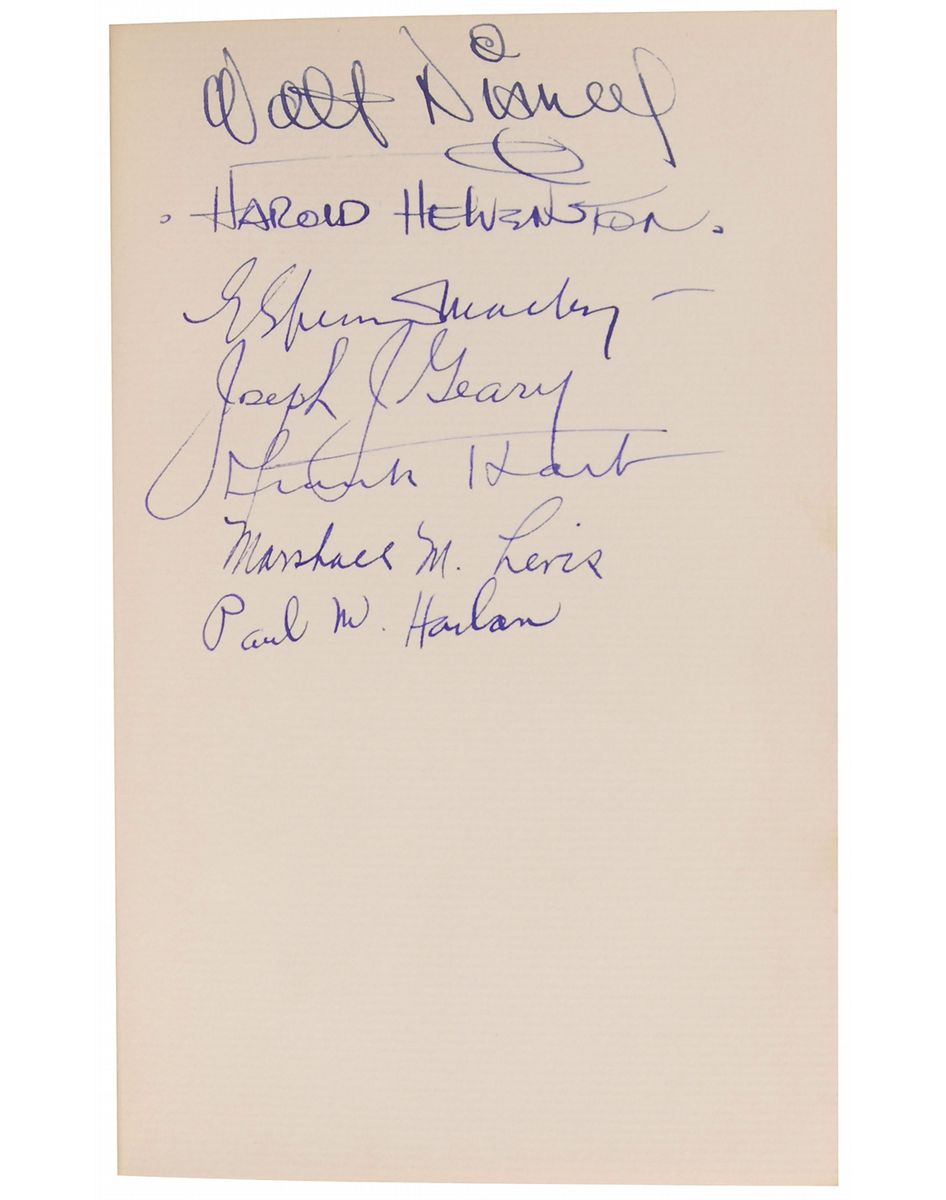 Walt Disney
. HAROLD HELVENSTON.
E Spencer Mackey
Joseph J Geary
Frank Hart
Marshall M. Levis
Paul W. Harlan